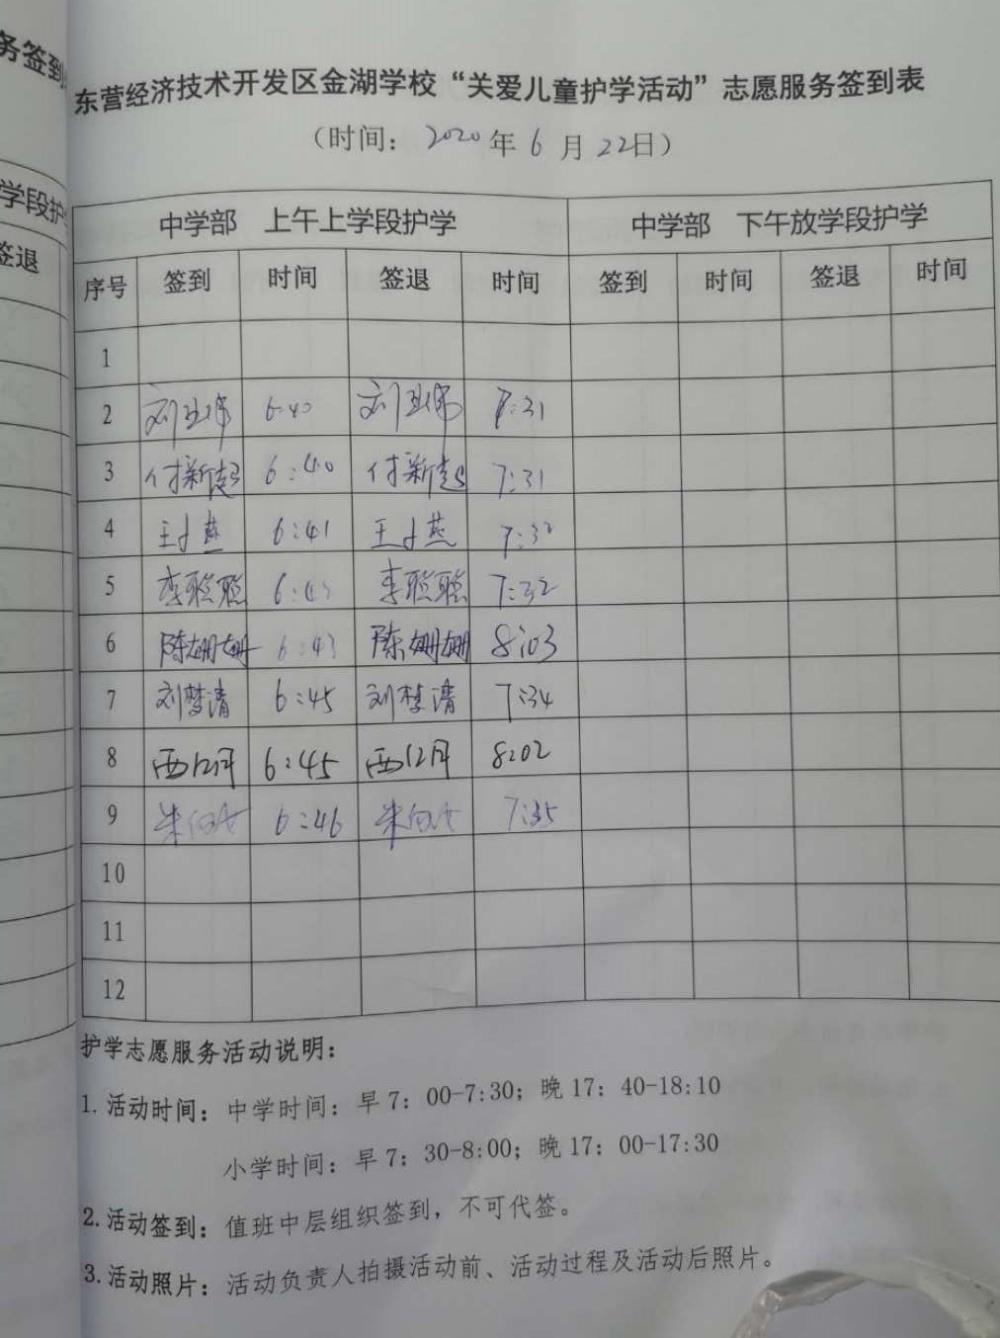 务签到
学段护
签退
东营经济技术开发区金湖学校“关爱儿童护学活动”志愿服务签到表
（时间：2020年6月22日）
中学部 上午上学段护学 中学部 下午放学段护学
序号 签到 时间 签退 时间 签到 时间 签退 时间
1
2 刘 6:40 刘 7:31
3 付新起 6:40 付新起 7:31
4 王 燕 6:41 王 燕 7:32
5 李聪聪 6:43 李聪聪 7:32
6 陈姗姗 6:43 陈姗姗 8:03
7 刘梦清 6:45 刘梦清 7:34
8 6:45 8:02
9 朱 6:46 朱 7:35
10
11
12
护学志愿服务活动说明：
1.活动时间：中学时间：早7：00-7:30；晚17：40-18:10
小学时间：早7：30-8:00；晚17：00-17:30
2.活动签到：值班中层组织签到，不可代签。
3.活动照片：活动负责人拍摄活动前、活动过程及活动后照片。